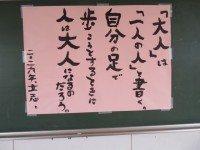 「大人」は
「一人の人」と書く。
自分の足で
歩こうとするときに
人は大人になるの
だろう。